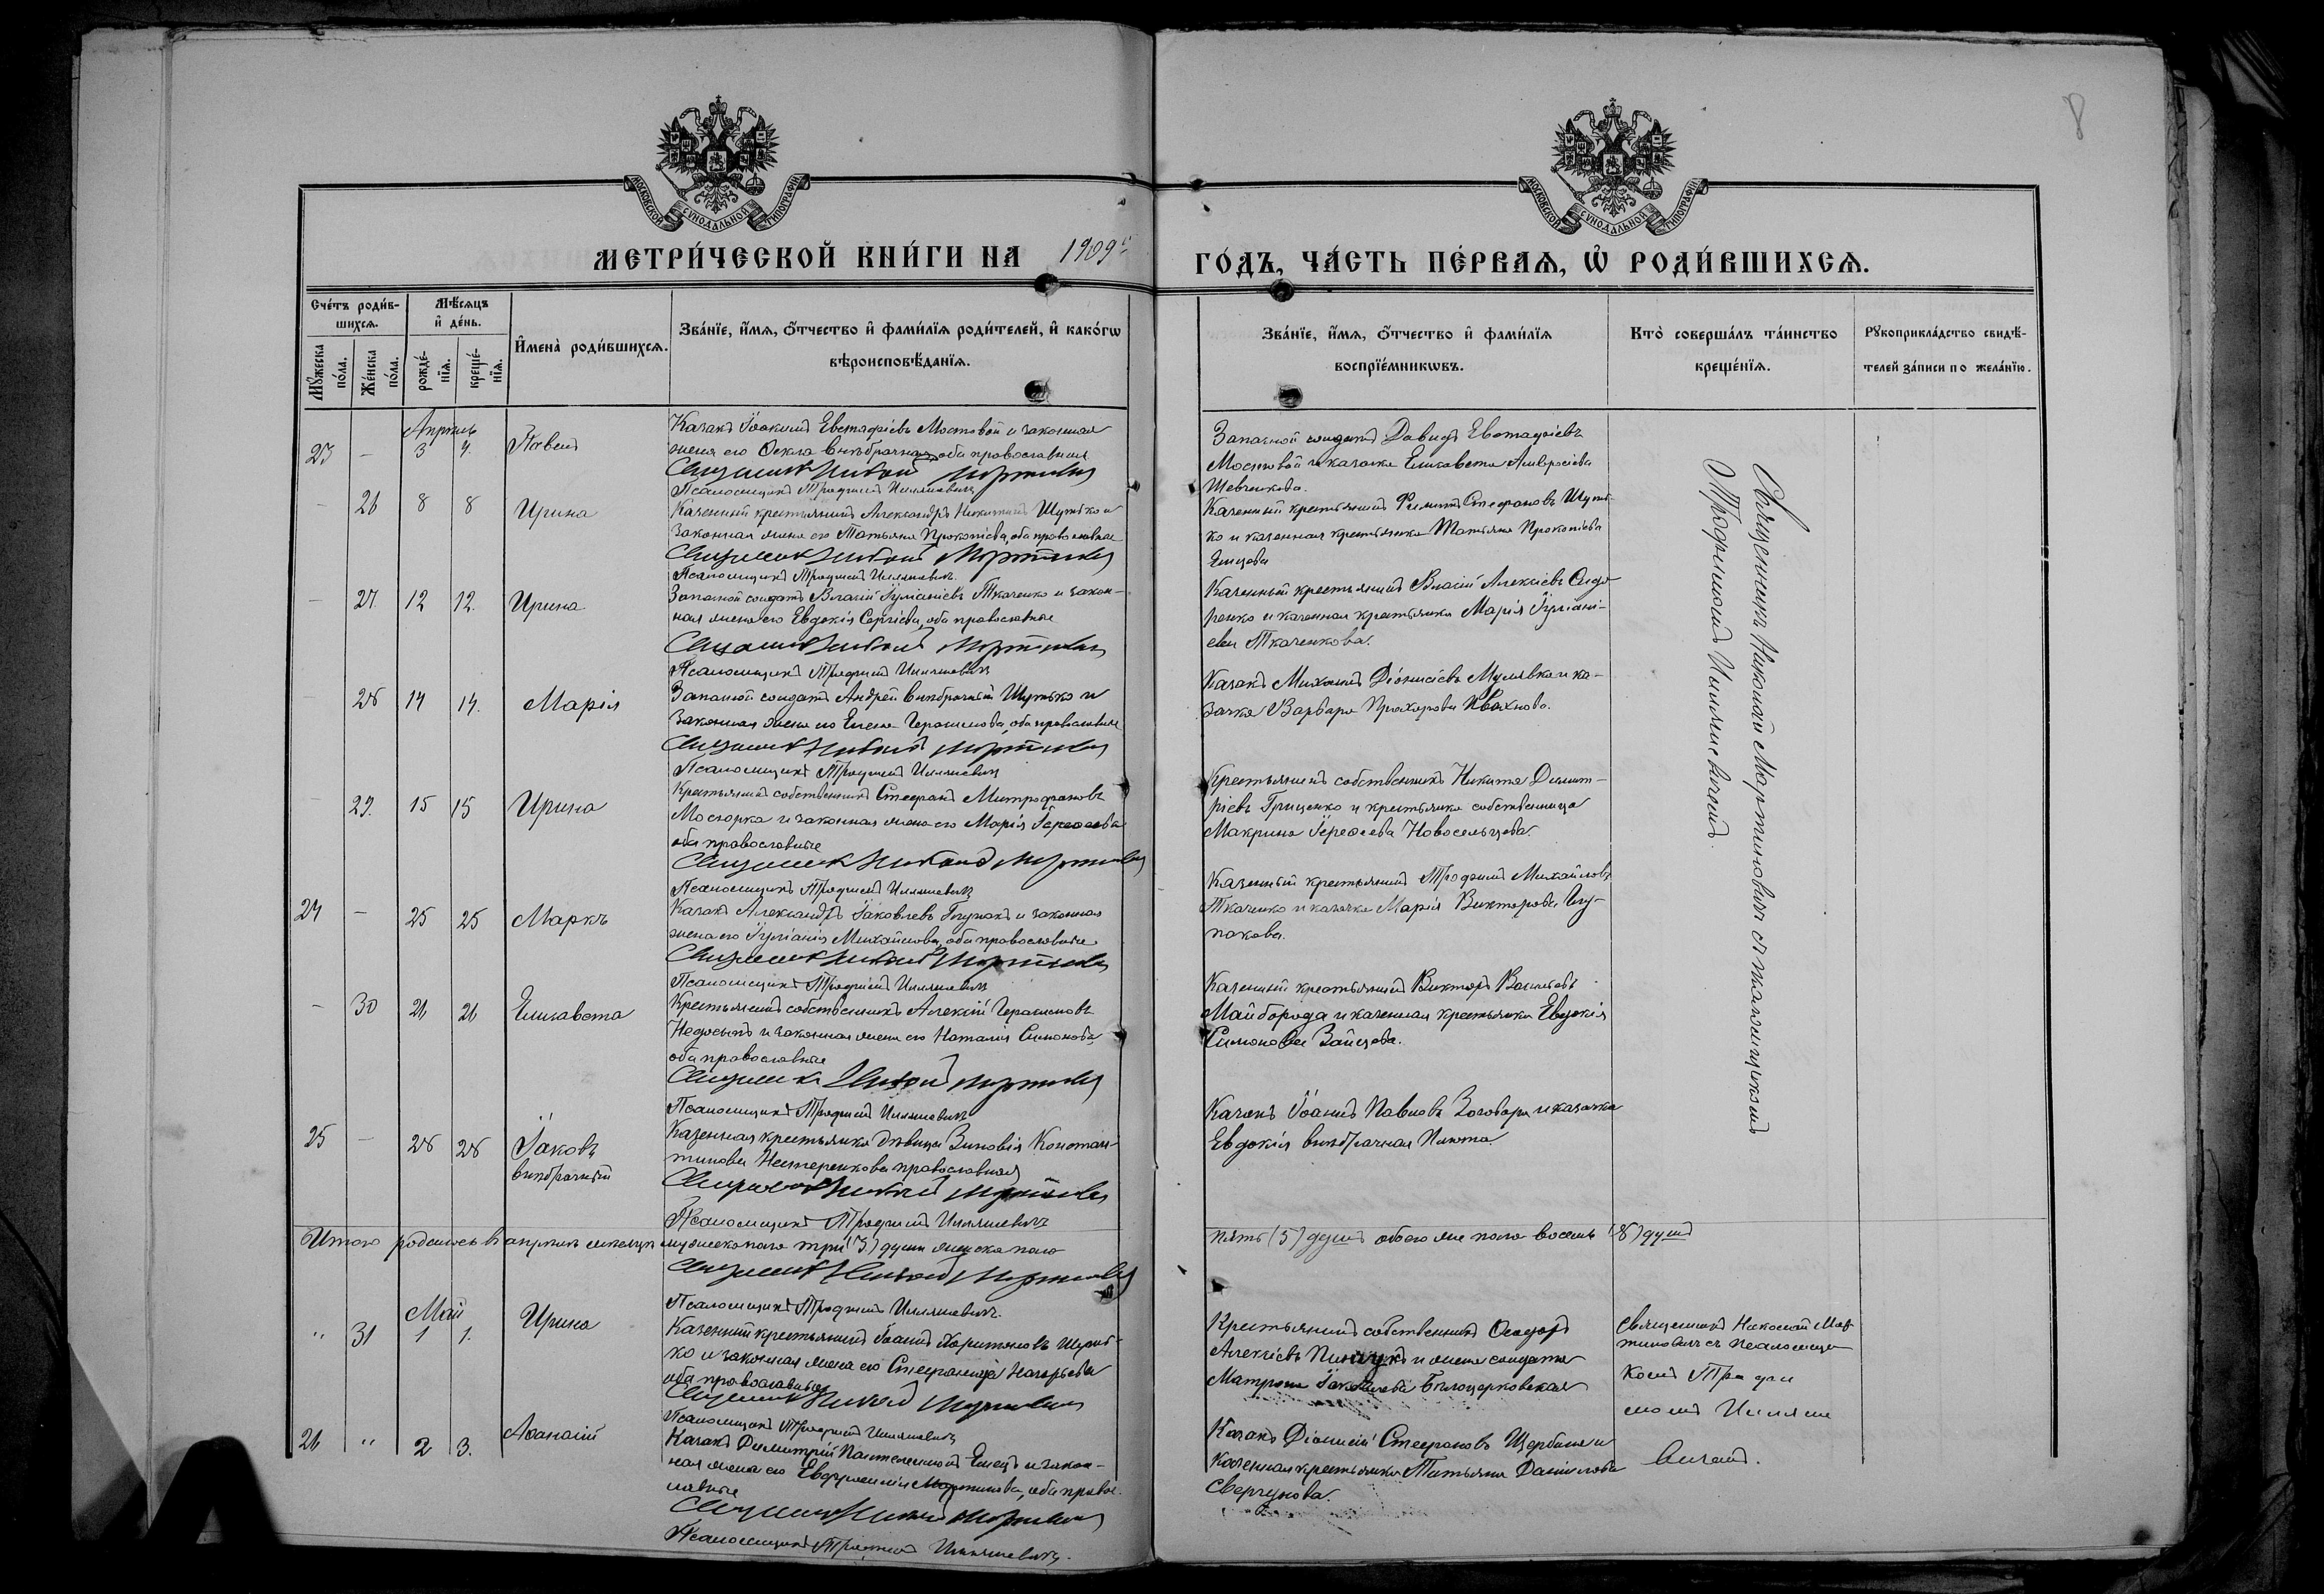 8
МОСКОВСКОЙ СѴНОДАЛЬНОЙ ТИПОГРАФІИ
МОСКОВСКОЙ СѴНОДАЛЬНОЙ ТИПОГРАФІИ
МЕТРИ́ЧЕСКОЙ КНИ́ГИ НА 1909
ГО́ДЪ, ЧА́СТЬ ПЕ́РВАѦ, Ѡ РОДИ́ВШИХСѦ.
Сче́тъ роди́в-
шихсѧ.
Мꙋ́жеска по́ла.
Же́нска по́ла.
Мѣ́сѧцъ
и де́нь.
рожде́-
нїѧ.
креще́-
нїѧ.
Имена̀ роди́вшихсѧ.
Зва́нїе, и́мѧ, ѻ́тчество и фами́лїѧ роди́телей, и како́гѡ
вѣроисповѣ́данїѧ.
Зва́нїе, и́мѧ, ѻ́тчество и фами́лїѧ
воспрїе́мникѡвъ.
Кто̀ соверша́лъ та́инство
креще́нїѧ.
Рꙋкоприкла́дство свидѣ́-
телей за́писи по жела́нїю.
Апрѣль
23 — 3 4. Павелъ
Казакъ Іоакимъ Евстафіевъ Мостовой и законная
жена его Ѳекла внѣбрачная, оба православные
Священникъ Николай Мартиновичъ
Псаломщикъ Трофимъ Илляшевичъ
Запасной солдатъ Давидъ Евстафіевъ
Мостовой и казачка Елисавета Амвросіева
Шевченкова.
— 26 8 8 Ирина
Казенный крестьянинъ Александръ Никитинъ Шутько и
законная жена его Татьяна Прокопіева, оба православные
Священникъ Николай Мартиновичъ
Псаломщикъ Трофимъ Илляшевичъ
Казенный крестьянинъ Филиппъ Стефановъ Шуть-
ко и казенная крестьянка Татьяна Прокопіева
Емцова
— 27. 12 12. Ирина
Запасной солдатъ Власій Іуліаніевъ Ткаченко и закон-
ная жена его Евдокія Сергіева, оба православные
Священникъ Николай Мартиновичъ
Псаломщикъ Трофимъ Илляшевичъ
Казенный крестьянинъ Власій Алексіевъ Сидо-
ренко и казенная крестьянка Марія Іуліані-
ева Ткаченкова.
— 28 14 14. Марія
Запасной солдатъ Андрей внѣбрачный Шутько и
законная жена его Елена Герасимова, оба православные
Священникъ Николай Мартиновичъ
Псаломщикъ Трофимъ Илляшевичъ
Казакъ Михаилъ Діонисіевъ Мулявка и ка-
зачка Варвара Прохорова Ивахнова.
— 29. 15 15 Ирина
Крестьянинъ собственникъ Стефанъ Митрофановъ
и законная жена его Марія Іеросеева
оба православные
Священникъ Николай Мартиновичъ
Псаломщикъ Трофимъ Илляшевичъ
Крестьянинъ собственникъ Никита Димит-
ріевъ Гриценко и крестьянка собственница
Макрина Іеросеева Новосельцева.
24 — 25 25 Маркъ
Казакъ Александръ Іаковлевъ и законная
жена его Іуліанія Михайлова, оба православные
Священникъ Николай Мартиновичъ
Псаломщикъ Трофимъ Илляшевичъ
Казенный крестьянинъ Трофимъ Михайловъ
Ткаченко и казачка Марія Викторова
— 30 26 26 Елисавета
Крестьянинъ собственникъ Алексій Герасимовъ
и законная жена его Наталія Симонова,
оба православные
Священникъ Николай Мартиновичъ
Псаломщикъ Трофимъ Илляшевичъ
Казенный крестьянинъ Викторъ Васильевъ
Майборода и казенная крестьянка Евдокія
Симонова Зайцева.
25 — 28 28 Іаковъ
внѣбрачный
Казенная крестьянка дѣвица Зиновія Констан-
тинова Нестеренкова православная
Священникъ Николай Мартиновичъ
Псаломщикъ Трофимъ Илляшевичъ
Казакъ Іоаннъ Павловъ и казачка
Евдокія внѣбрачная
Священникъ Николай Мартиновичъ съ псаломщикомъ
Трофимомъ Илляшевичемъ.
Итого родилось въ апрѣлѣ мѣсяцѣ мужеска пола три (3) души женска пола
пять (5) душъ обоего же пола восемь (8) душъ
Священникъ Николай Мартиновичъ
Псаломщикъ Трофимъ Илляшевичъ.
Май
" 31 1 1. Ирина
Казенный крестьянинъ Іоаннъ Харитоновъ Шуть-
ко и законная жена его Стефанида Назарьева
оба православные
Священникъ Николай Мартиновичъ
Псаломщикъ Трофимъ Илляшевичъ
Крестьянинъ собственникъ Ѳеодоръ
Алексіевъ и жена солдата
Матрона Іаковлева Бѣлоцерковская
Священникъ Николай Мар-
тиновичъ съ псаломщи-
комъ Трофи
момъ Илляше
вичемъ.
26 " 2 3. Аѳанасій
Казакъ Димитрій Пантелеимоновъ Емецъ и закон-
ная жена его Евфимія Мартинова, оба право-
славные
Священникъ Николай Мартиновичъ
Псаломщикъ Трофимъ Илляшевичъ.
Казакъ Діонисій Стефановъ Щербина и
казенная крестьянка Татьяна Данилова
Сверчукова.